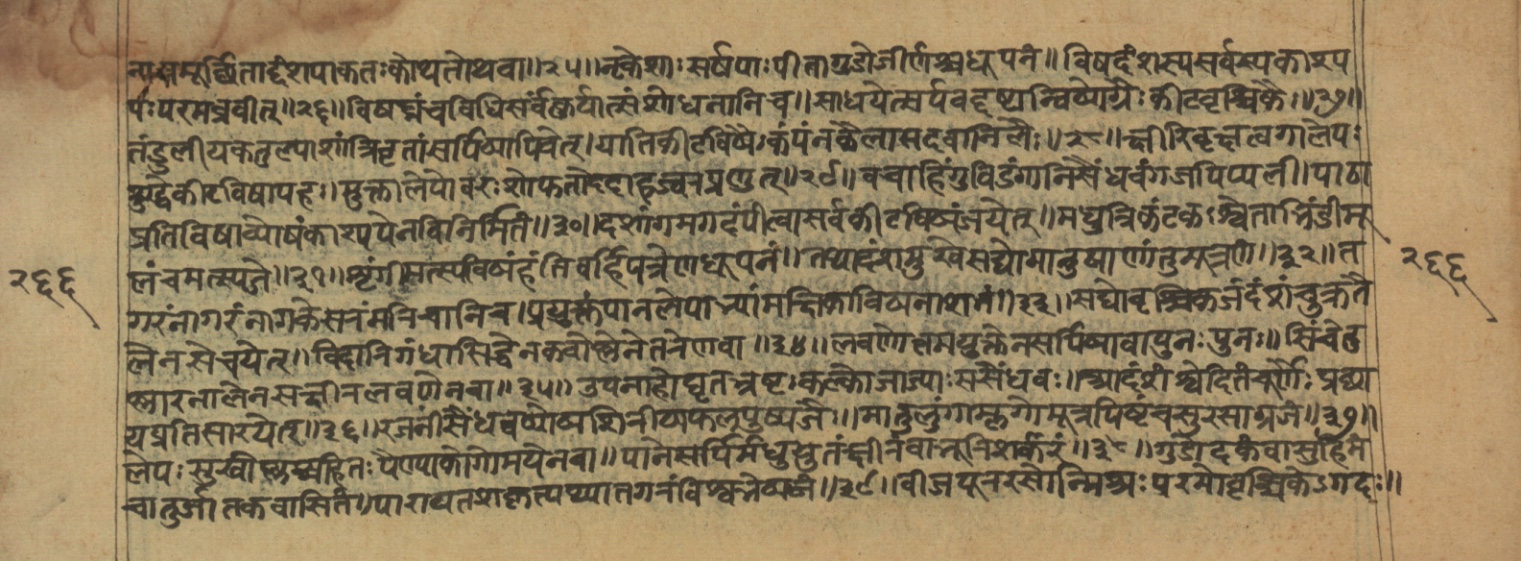 नासमूर्छितादंशपाकतःकोथतोथवा॥२५॥नृकेशाःसर्षपाःपीतागुडोजीर्णश्चधूपनं॥विषदंशस्यसर्वस्यकाश्यप
पःपरमब्रवीत्॥२६॥विषघ्नंचविधिंसर्वंकुर्यात्संशोधनानिच॥साधयेत्सर्पवद्दष्टान्विषोग्रैःकीटवृश्चिकैः॥२७॥
तंडुलीयकतुल्पाशांत्रिवृतांसर्पिषापिवेत्।यातिकीटविषैःकंपंनकैलासइवानिलैः॥२८॥क्षीरिवृक्षत्वगालेपः
शुद्धेकीटविषापहः।मुक्तालेपोवरःशोफतोददाहज्वरप्रणुत्॥२९॥वचाहिंगुविडंगानिसैंधवंगजपिप्पली।पाठा
प्रतिविषाव्योषंकाश्यपेनविनिर्मितं॥३०॥दशांगमगदंपीत्वासर्वकीटविषंजयेत्॥
लंचमत्स्यजे॥३१॥शृंगीमत्स्यविषंहंतिवर्हिपत्रेणधूपनं॥ ॥३२॥त
गरंनागरंनागकेसरंमरिचानिच।प्रयुक्तंपानलेपाभ्यांमक्षिकाविषनाशनं॥३३॥सद्योवृश्चिकजंदंशंचुक्रतै
लेनसेचयेत्॥विदारिगंधासिद्धेनकवोष्णेनेतरेणवा॥३४॥लवणोत्तमयुक्तेनसर्पिषावापुनःपुनः॥सिंचेत्को
ष्णारनालेनसक्षीरलवणेनवा॥३५॥उपनाहोघृतभृष्टःकल्कोजाज्याःससैंधवः॥आदंशंश्वेदितंचूर्णैःप्रछा
यप्रतिसारयेत्॥३६॥रजनीसैंधवव्योषशिरीषफलपुष्पजैः॥मातुलुंगाम्लगोमूत्रपिष्टंचसुरसाग्रजं॥३७॥
लेपःसुखोष्णश्चहितःपिण्याकोगोमयेनवा॥पानेसर्पिर्मधुयुतंक्षीरंवाभूरिशर्करं॥३८॥गुडोदकंवासुहिमं
चातुर्जातकवासितं॥पारावतशकृत्पथ्यातगरंविश्वभेषजं॥३९॥वीजपूररसोन्मिश्रःपरमोवृश्चिकेऽगदः॥
२६६
२६६